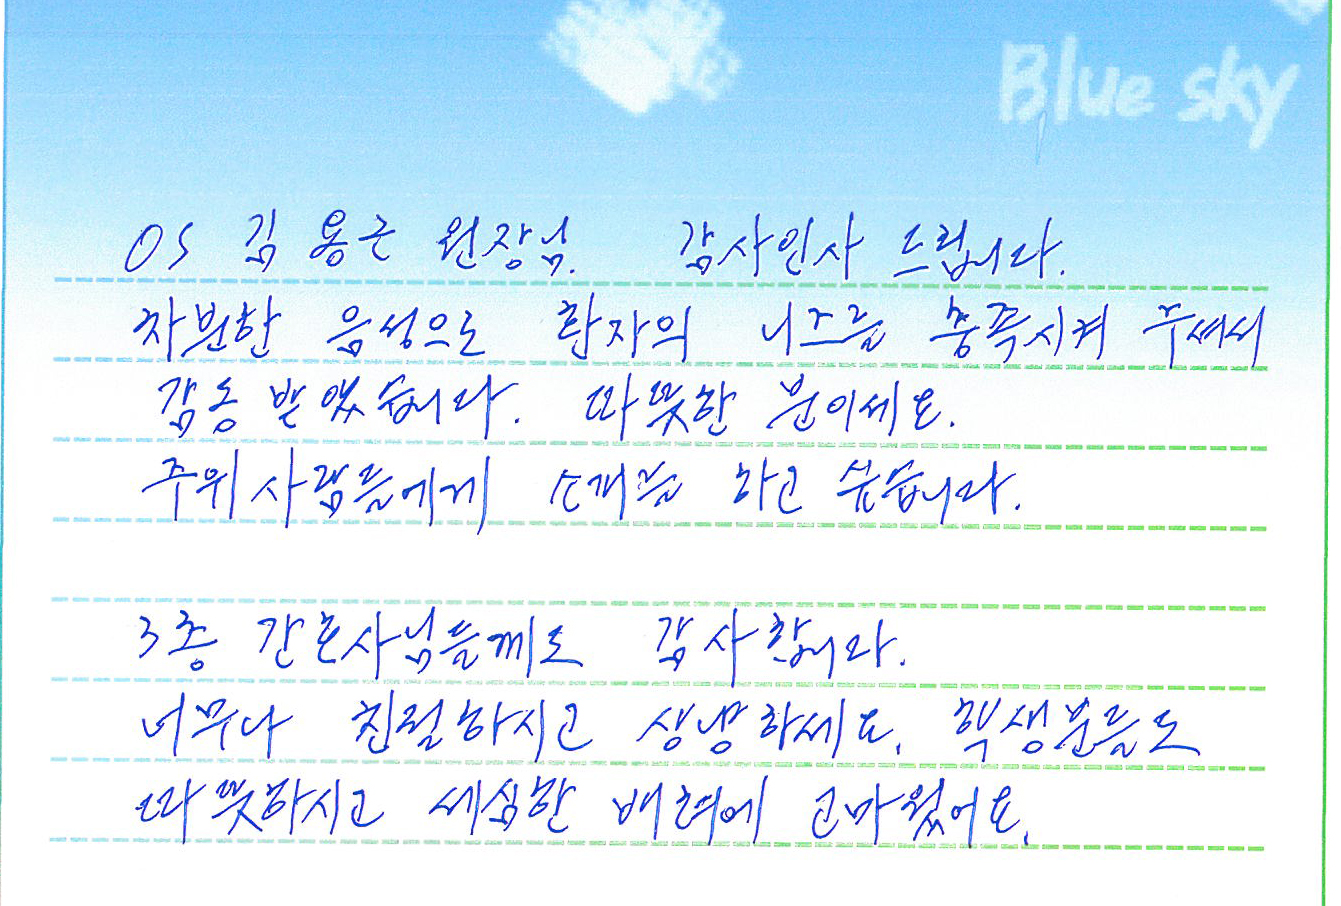 Blue sky
OS 김용근 원장님. 감사인사 드립니다.
차분한 음성으로 환자의 니즈를 충족시켜 주셔서
감동 받았습니다. 따뜻한 분이세요.
주위 사람들에게 소개를 하고 싶습니다.
3층 간호사님들께도 감사합니다.
너무나 친절하시고 상냥하세요. 학생분들도
따뜻하시고 세심한 배려에 고마웠어요.